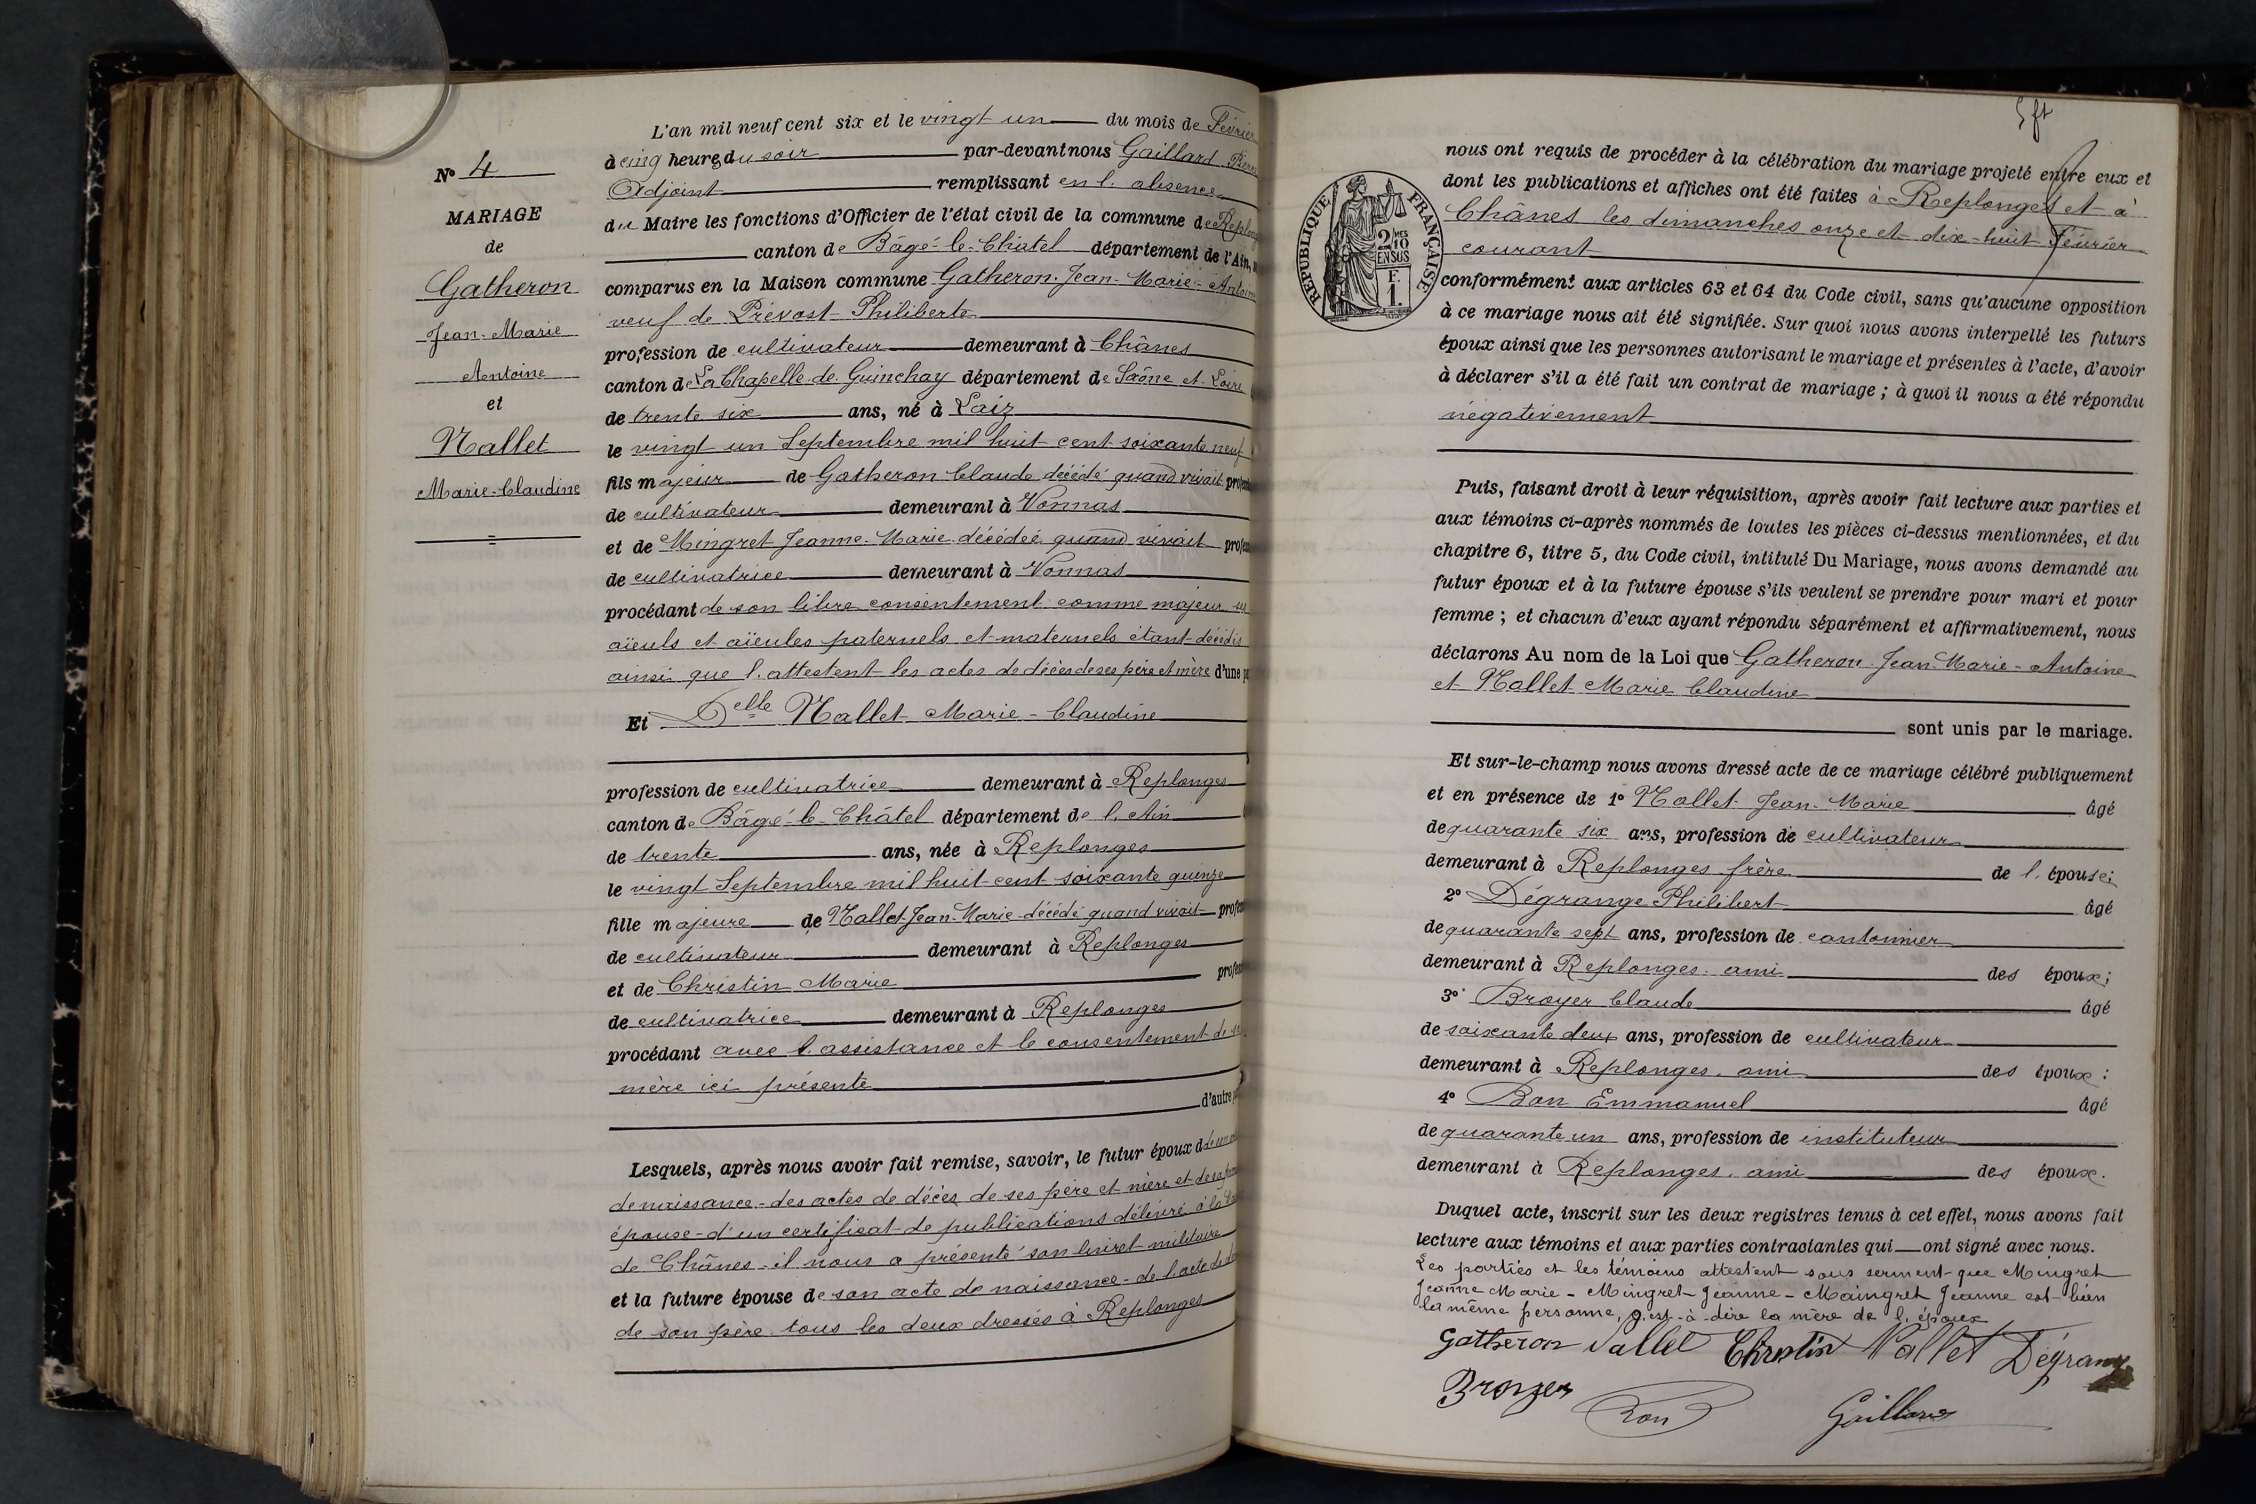 L'an mil neuf cent six et le vingt un du mois de Février
à cinq heures du soir par-devant nous Gaillard Pierre
Adjoint remplissant en l'absence
du Maire les fonctions d'Officier de l'état civil de la commune de Replonges
canton de Bâgé-le-Châtel département de l'Ain,
comparus en la Maison commune Gatheron Jean-Marie-Antoine
veuf de Prévost Philiberte
profession de cultivateur demeurant à Chânes
canton de La Chapelle de Guinchay département de Saône et Loire
de trente six ans, né à Laiz
le vingt un Septembre mil huit cent soixante neuf
fils majeur de Gatheron Claude décédé quand vivait
de cultivateur demeurant à Vonnas
et de Mingret Jeanne-Marie décédée quand vivait
de cultivatrice demeurant à Vonnas
procédant de son libre consentement comme majeur
aïeuls et aïeules paternels et maternels étant décédés
ainsi que l'attestent les actes de décès de ses père et mère d'une
Et Delle Nallet Marie-Claudine
profession de cultivatrice demeurant à Replonges
canton de Bâgé-le-Châtel département de l'Ain
de trente ans, née à Replonges
le vingt Septembre mil huit cent soixante quinze
fille majeure de Nallet Jean-Marie décédé quand vivait
de cultivateur demeurant à Replonges
et de Christin Marie
de cultivatrice demeurant à Replonges
procédant avec l'assistance et le consentement de sa
mère ici présente
d'autre
Lesquels, après nous avoir fait remise, savoir, le futur époux de
de naissance - des actes de décès de ses père et mère et de sa
épouse - d'un certificat de publications délivré à la
de Chânes - il nous a présenté son livret militaire
et la future épouse de son acte de naissance - de l'acte de
de son père tous les deux dressés à Replonges
No 4
MARIAGE
de
Gatheron
Jean-Marie
Antoine
et
Nallet
Marie-Claudine
RÉPUBLIQUE FRANÇAISE
2 MES
10
EN SUS
F.
1.
nous ont requis de procéder à la célébration du mariage projeté entre eux et
dont les publications et affiches ont été faites à Replonges et à
Chânes les dimanches onze et dix-huit Février
courant
conformément aux articles 63 et 64 du Code civil, sans qu'aucune opposition
à ce mariage nous ait été signifiée. Sur quoi nous avons interpellé les futurs
époux ainsi que les personnes autorisant le mariage et présentes à l'acte, d'avoir
à déclarer s'il a été fait un contrat de mariage ; à quoi il nous a été répondu
négativement
Puis, faisant droit à leur réquisition, après avoir fait lecture aux parties et
aux témoins ci-après nommés de toutes les pièces ci-dessus mentionnées, et du
chapitre 6, titre 5, du Code civil, intitulé Du Mariage, nous avons demandé au
futur époux et à la future épouse s'ils veulent se prendre pour mari et pour
femme ; et chacun d'eux ayant répondu séparément et affirmativement, nous
déclarons Au nom de la Loi que Gatheron Jean-Marie-Antoine
et Nallet Marie Claudine
sont unis par le mariage.
Et sur-le-champ nous avons dressé acte de ce mariage célébré publiquement
et en présence de 1° Nallet Jean-Marie âgé
de quarante six ans, profession de cultivateur
demeurant à Replonges frère de l'épouse;
2° Dégrange Philibert âgé
de quarante sept ans, profession de cantonnier
demeurant à Replonges ami des époux;
3° Broyer Claude âgé
de soixante deux ans, profession de cultivateur
demeurant à Replonges, ami des époux:
4° Bon Emmanuel âgé
de quarante un ans, profession de instituteur
demeurant à Replonges, ami des époux.
Duquel acte, inscrit sur les deux registres tenus à cet effet, nous avons fait
lecture aux témoins et aux parties contractantes qui ont signé avec nous.
Les parties et les témoins attestent sous serment que Mingret
Jeanne Marie - Mingret Jeanne - Maingret Jeanne est bien
la même personne, c'est-à-dire la mère de l'époux
Gatheron Nallet Christin Nallet Dégrange
Broyer Bon Gaillard